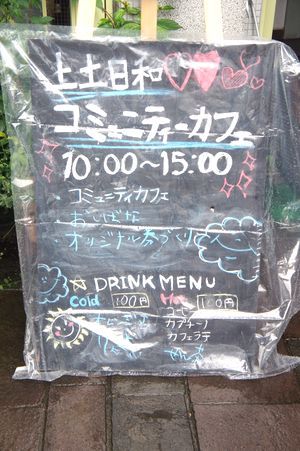 上土日和
コミュニティーカフェ
10:00～15:00
・コミュニティカフェ
・おしばな
・オリジナル券づくり
☆ DRINK MENU
Cold 100円
Hot 100円
コーヒー
カプチーノ
カフェラテ